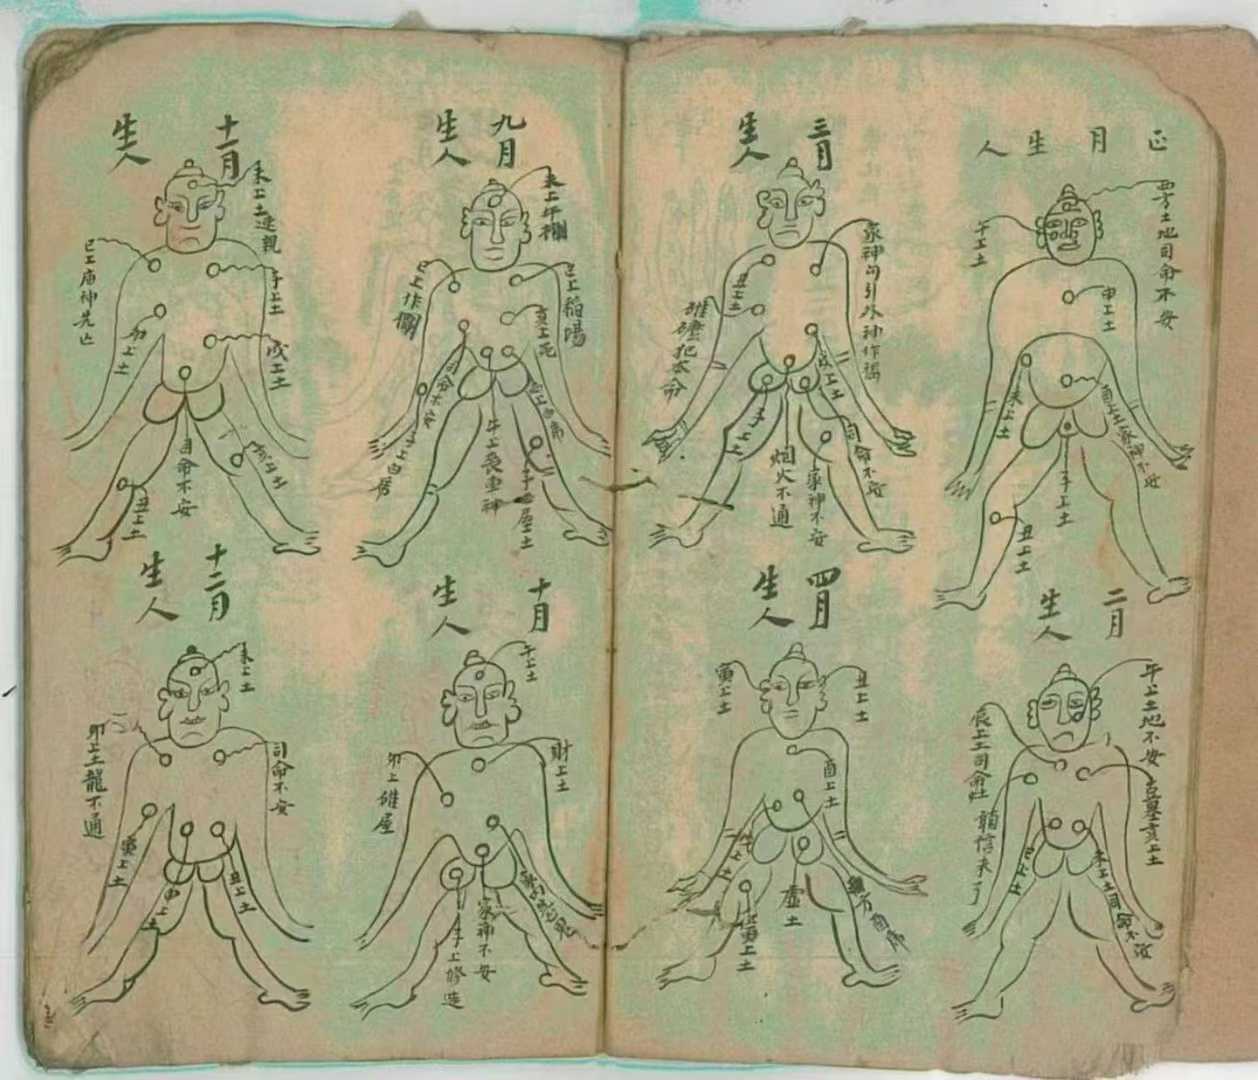 正月生人
西方土地司命不安
午上土
申上土
未上土
酉上土家神不安
子上土
丑上土
二月生人
午上土地不安
辰上土司命
願信未了
未上土司命不安
三月生人
家神勾引外神作禍
丑上土
碓磨犯本命
戌上土
子上土
司命不安
烟火不通
家神不安
四月生人
寅上土
丑上土
酉上土
虛土
寅上土
九月生人
未上牛欄
巳上作欄
巳上稻場
亥上
司命不安
午上喪車神
十月生人
午上土
卯上碓屋
財上土
家神不安
子上修造
十一月生人
未上土
巳上廟神先亡
子上土
卯上土
戌上土
司命不安
丑上土
十二月生人
未上土
卯上土龍不通
司命不安
寅上土
丑上土
申上土